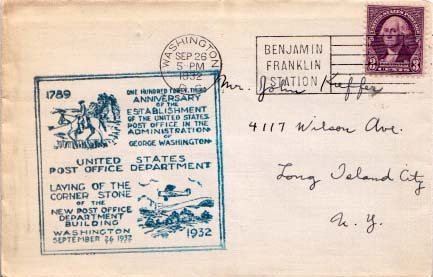 WASHINGTON
SEP 26
5-PM
1932
BENJAMIN
FRANKLIN
STATION
3 3
1789
ONE HUNDRED FORTY THIRD
ANNIVERSARY
OF THE
ESTABLISHMENT
OF THE UNITED STATES
POST OFFICE IN THE
ADMINISTRATION
OF
GEORGE WASHINGTON
UNITED STATES
POST OFFICE DEPARTMENT
LAYING OF THE
CORNER STONE
OF THE
NEW POST OFFICE
DEPARTMENT
BUILDING
WASHINGTON
SEPTEMBER 26 1932
1932
Mr. John Kieffer
4117 Wilson Ave.
Long Island City
N.Y.